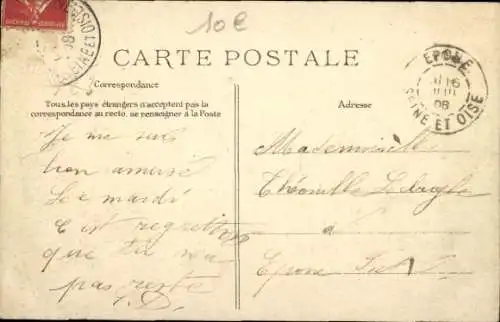 10€
CARTE POSTALE
Correspondance
Tous les pays étrangers n'acceptent pas la
correspondance au recto, se renseigner à la Poste
Adresse
EPONE
16
08
SEINE ET OISE
SEINE ET OISE
Je me suis
bien amusé
Le mardi
C'est regrettable
que tu n'a
pas resté
J.D.
Mademoiselle
Théonille
à
Epone